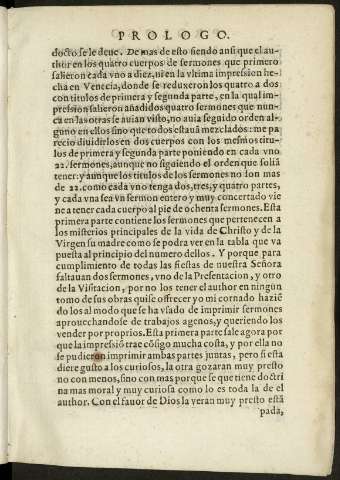 PROLOGO.
docto se le deue. De mas de esto siendo ansi que el au-
thor en los quatro cuerpos de sermones que primero
salieron cada vno a diez, ni en la vltima impression he-
cha en Venecia, donde se reduxeron los quatro a dos
con titulos de primera y segunda parte, en la qual im-
pression salieron añadidos quatro sermones que nun-
ca en las otras se auian visto, no auia seguido orden al-
guno en ellos sino que todos estauã mezclados: me pa-
recio diuidirlos en dos cuerpos con los mesmos titu-
los de primera y segunda parte poniendo en cada vno
22. sermones, aunque no siguiendo el orden que soliã
tener: y aunque los titulos de los sermones no son mas
de 22. como cada vno tenga dos, tres, y quatro partes,
y cada vna sea vn sermon entero y muy concertado vie
ne a tener cada cuerpo al pie de ochenta sermones. Esta
primera parte contiene los sermones que pertenecen a
los misterios principales de la vida de Christo y de la
Virgen su madre como se podra ver en la tabla que va
puesta al principio del numero dellos. Y porque para
cumplimiento de todas las fiestas de nuestra Señora
faltauan dos sermones, vno de la Presentacion, y otro
de la Visitacion, por no los tener el author en ningũn
tomo de sus obras quise offrecer yo mi cornado haziẽ
do los al modo que se ha vsado de imprimir sermones
aprouechandose de trabajos agenos, y queriendo los
vender por proprios. Esta primera parte sale agora por
que la impressiõ trae cõsigo mucha costa, y por ella no
se pudieron imprimir ambas partes juntas, pero si esta
diere gusto a los curiosos, la otra gozaran muy presto
no con menos, sino con mas porque se que tiene doctri
na mas moral y muy curiosa como lo es toda la de el
author. Con el fauor de Dios la veran muy presto está
pada,